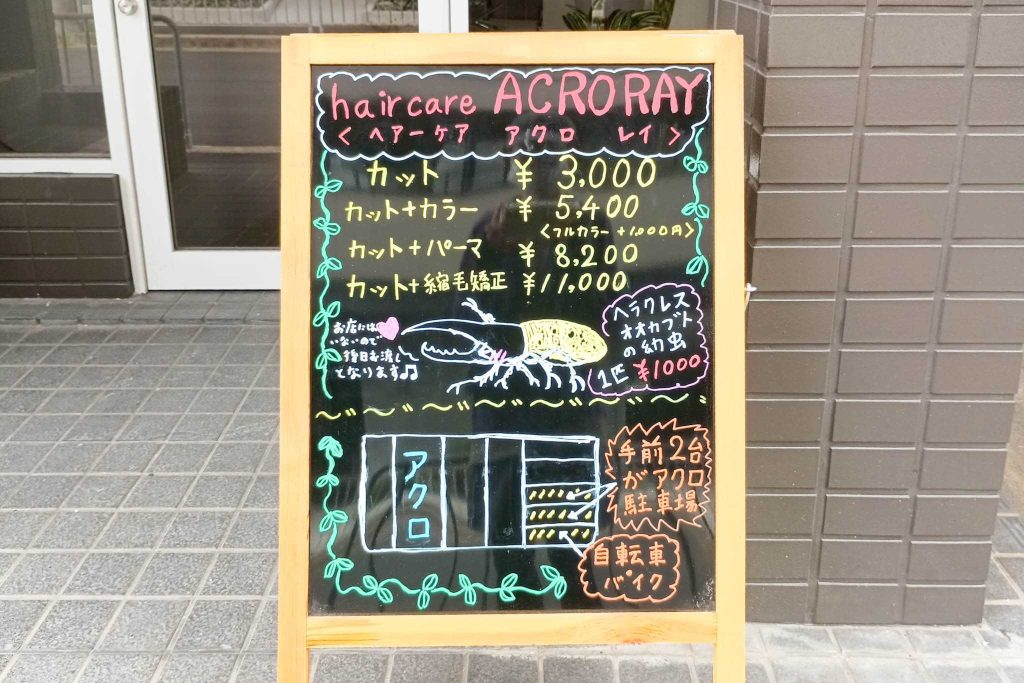 haircare ACRO RAY
< ヘアーケア アクロ レイ >
カット ¥ 3,000
カット+カラー ¥ 5,400
<フルカラー +1,000円>
カット+パーマ ¥ 8,200
カット+縮毛矯正 ¥11,000
お店には
いないので
後日お渡し
となります♫
ヘラクレス
オオカブト
の幼虫
1匹 ¥1000
アクロ
手前2台
がアクロ
駐車場
自転車
バイク